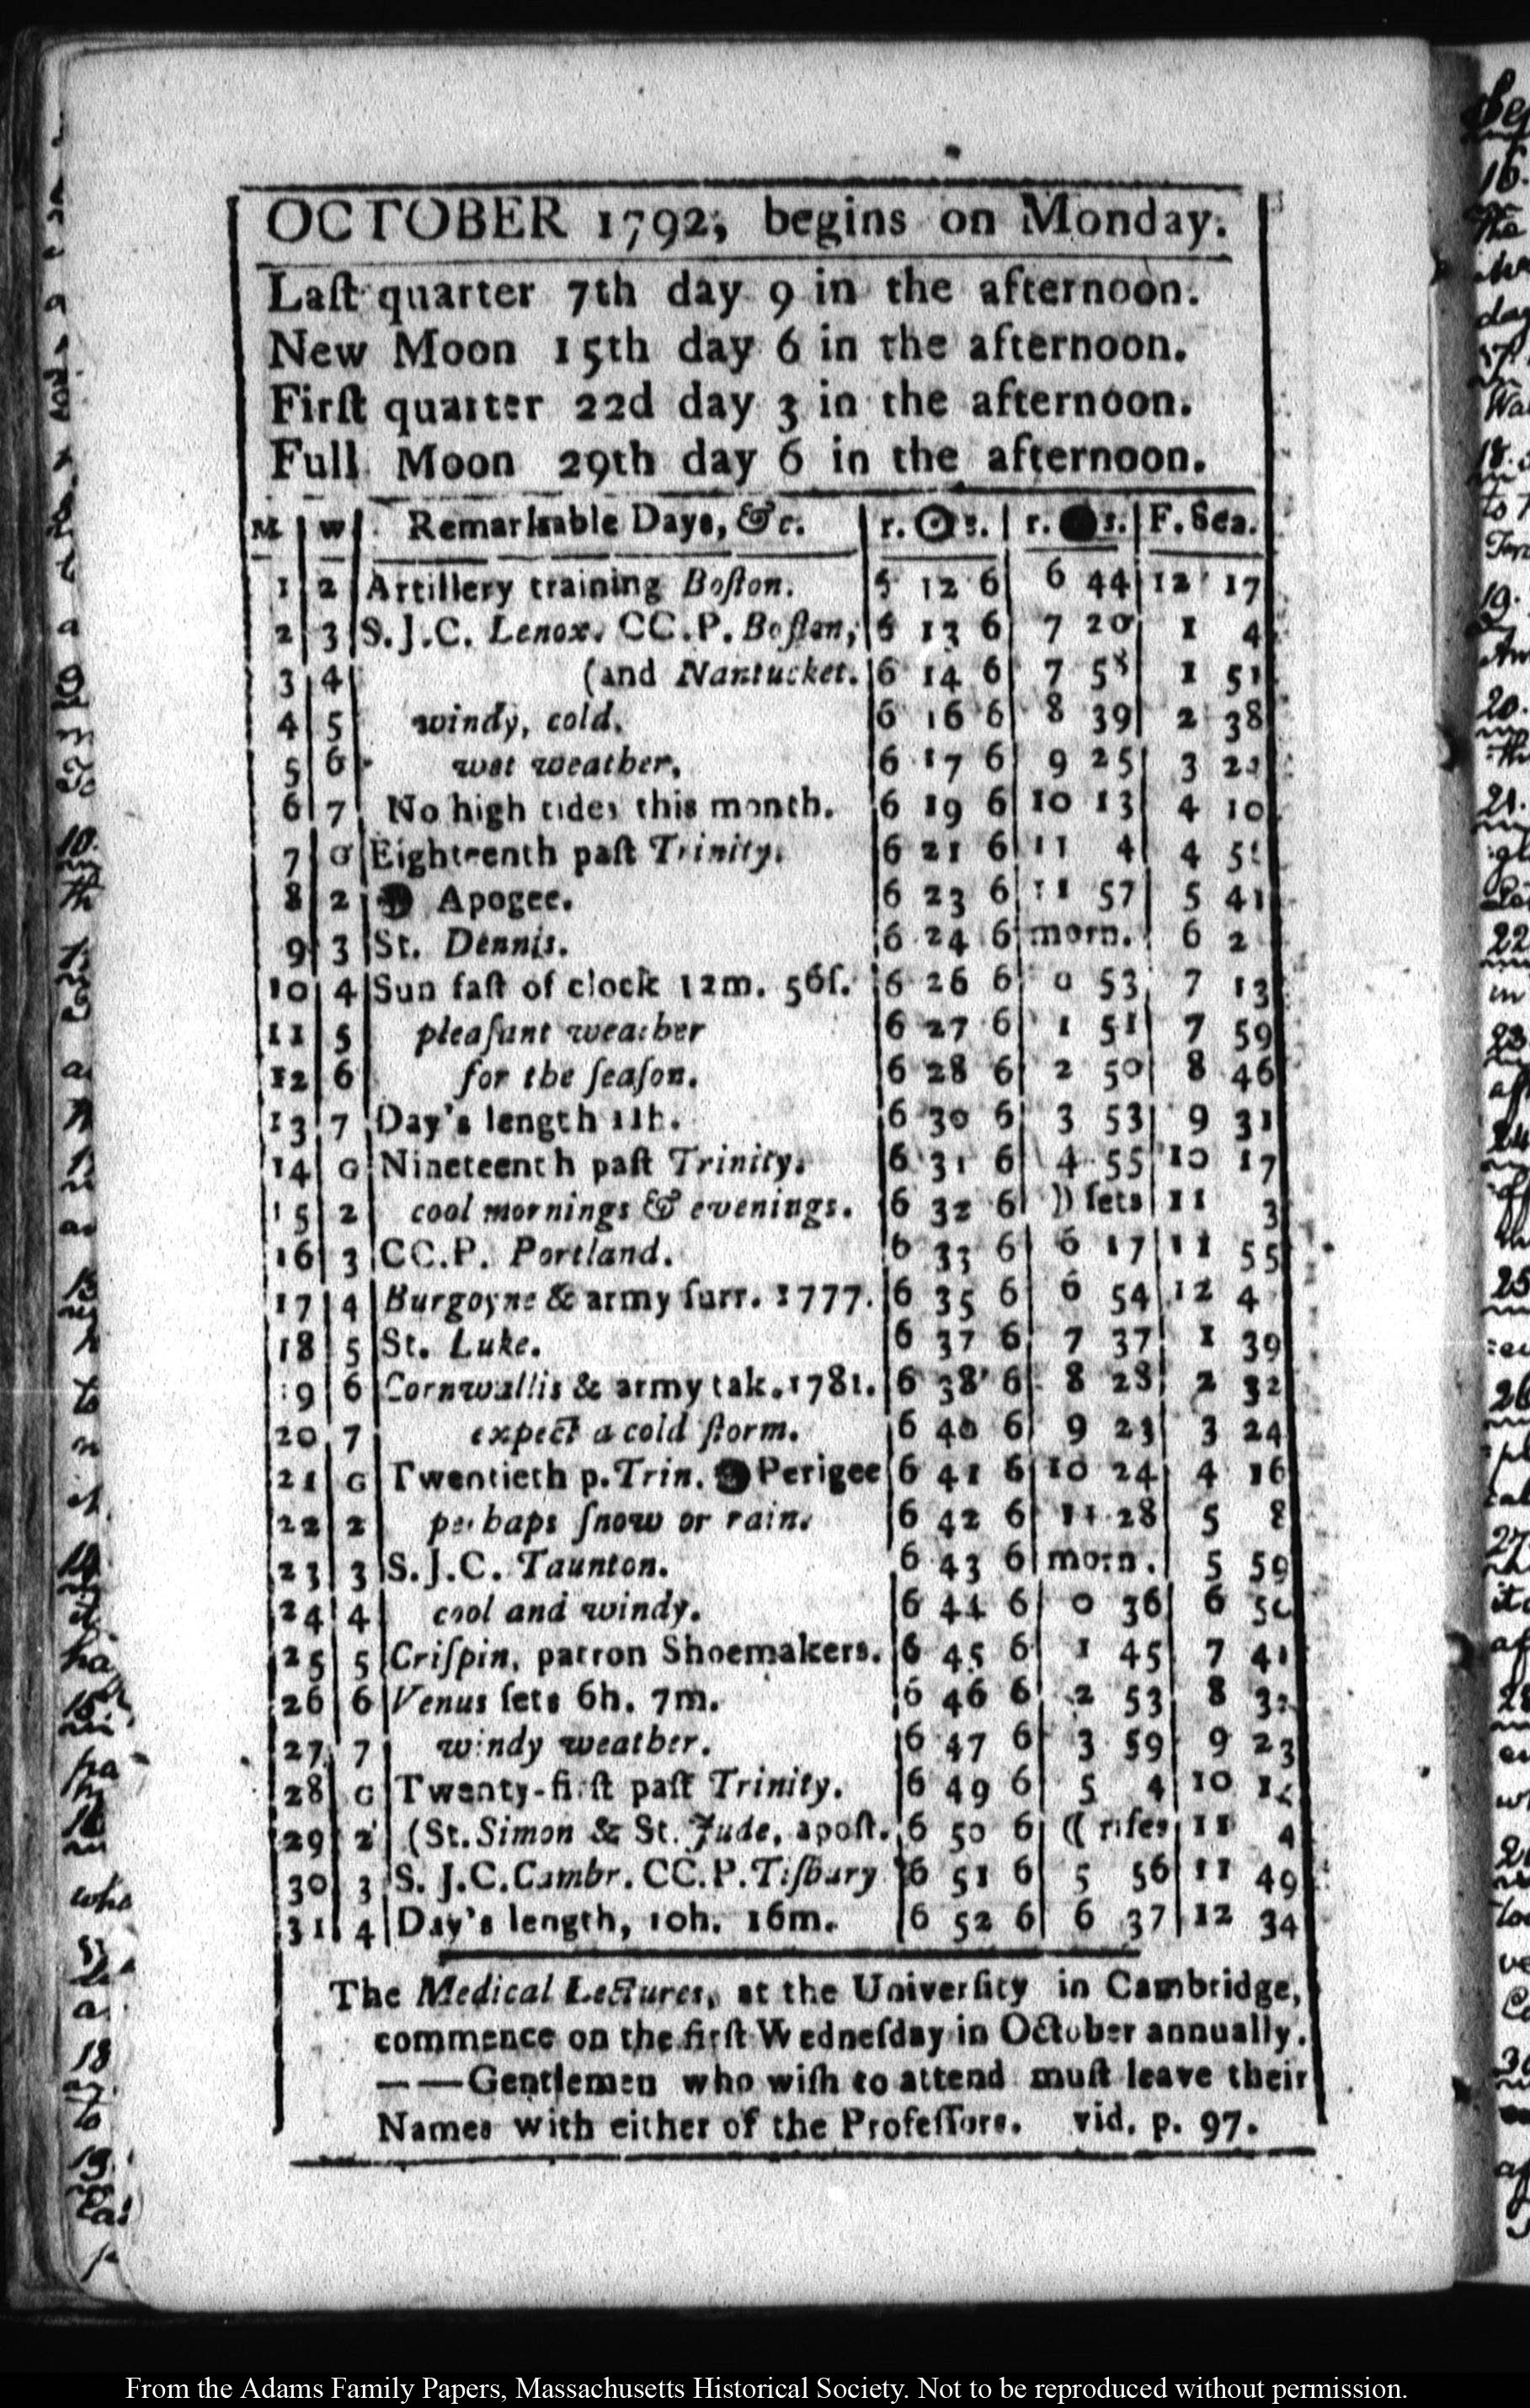 OCTOBER 1792; begins on Monday.
Laſt quarter 7th day 9 in the afternoon.
New Moon 15th day 6 in the afternoon.
Firſt quarter 22d day 3 in the afternoon.
Full Moon 29th day 6 in the afternoon.
M | W | Remarkable Days, &c. | r. ☉ s. | r. ● s. | F. Sea.
1 | 2 | Artillery training Boſton. | 6 12 6 | 6 44 | 12 17
2 | 3 | S.J.C. Lenox. CC.P. Boſton, | 6 13 6 | 7 20 | 1 4
3 | 4 | (and Nantucket. | 6 14 6 | 7 58 | 1 51
4 | 5 | windy, cold, | 6 16 6 | 8 39 | 2 38
5 | 6 | wet weather, | 6 17 6 | 9 25 | 3
6 | 7 | No high tides this month. | 6 19 6 | 10 13 | 4 10
7 | G | Eighteenth paſt Trinity. | 6 21 6 | 11 4 | 4
8 | 2 | ● Apogee. | 6 23 6 | 11 57 | 5 41
9 | 3 | St. Dennis. | 6 24 6 | morn. | 6 2
10 | 4 | Sun faſt of clock 12m. 56ſ. | 6 26 6 | 0 53 | 7 13
11 | 5 | pleaſant weather | 6 27 6 | 1 51 | 7 59
12 | 6 | for the ſeaſon. | 6 28 6 | 2 50 | 8 46
13 | 7 | Day's length 11h. | 6 30 6 | 3 53 | 9 31
14 | G | Nineteenth paſt Trinity. | 6 31 6 | 4 55 | 10 17
15 | 2 | cool mornings & evenings. | 6 32 6 | )) ſets | 11 3
16 | 3 | CC.P. Portland. | 6 33 6 | 6 17 | 11 55
17 | 4 | Burgoyne & army ſurr. 1777. | 6 35 6 | 6 54 | 12 4
18 | 5 | St. Luke. | 6 37 6 | 7 37 | 1 39
19 | 6 | Cornwallis & army tak. 1781. | 6 38 6 | 8 28 | 2 32
20 | 7 | expect a cold ſtorm. | 6 40 6 | 9 23 | 3 24
21 | G | Twentieth p. Trin. ● Perigee | 6 41 6 | 10 24 | 4 16
22 | 2 | perhaps ſnow or rain. | 6 42 6 | 11 28 | 5 8
23 | 3 | S.J.C. Taunton. | 6 43 6 | morn. | 5 59
24 | 4 | cool and windy. | 6 44 6 | 0 36 | 6 50
25 | 5 | Criſpin, patron Shoemakers. | 6 45 6 | 1 45 | 7 41
26 | 6 | Venus ſets 6h. 7m. | 6 46 6 | 2 53 | 8
27 | 7 | windy weather. | 6 47 6 | 3 59 | 9 23
28 | G | Twenty-firſt paſt Trinity. | 6 49 6 | 5 4 | 10
29 | 2 | (St. Simon & St. Jude, apoſt. | 6 50 6 | (( riſes | 11 4
30 | 3 | S. J.C. Cambr. CC.P. Tiſbury | 6 51 6 | 5 56 | 11 49
31 | 4 | Day's length, 10h. 16m. | 6 52 6 | 6 37 | 12 34
The Medical Lectures, at the Univerſity in Cambridge,
commence on the firſt Wedneſday in October annually.
——Gentlemen who wiſh to attend muſt leave their
Names with either of the Profeſſors. vid. p. 97.
From the Adams Family Papers, Massachusetts Historical Society. Not to be reproduced without permission.